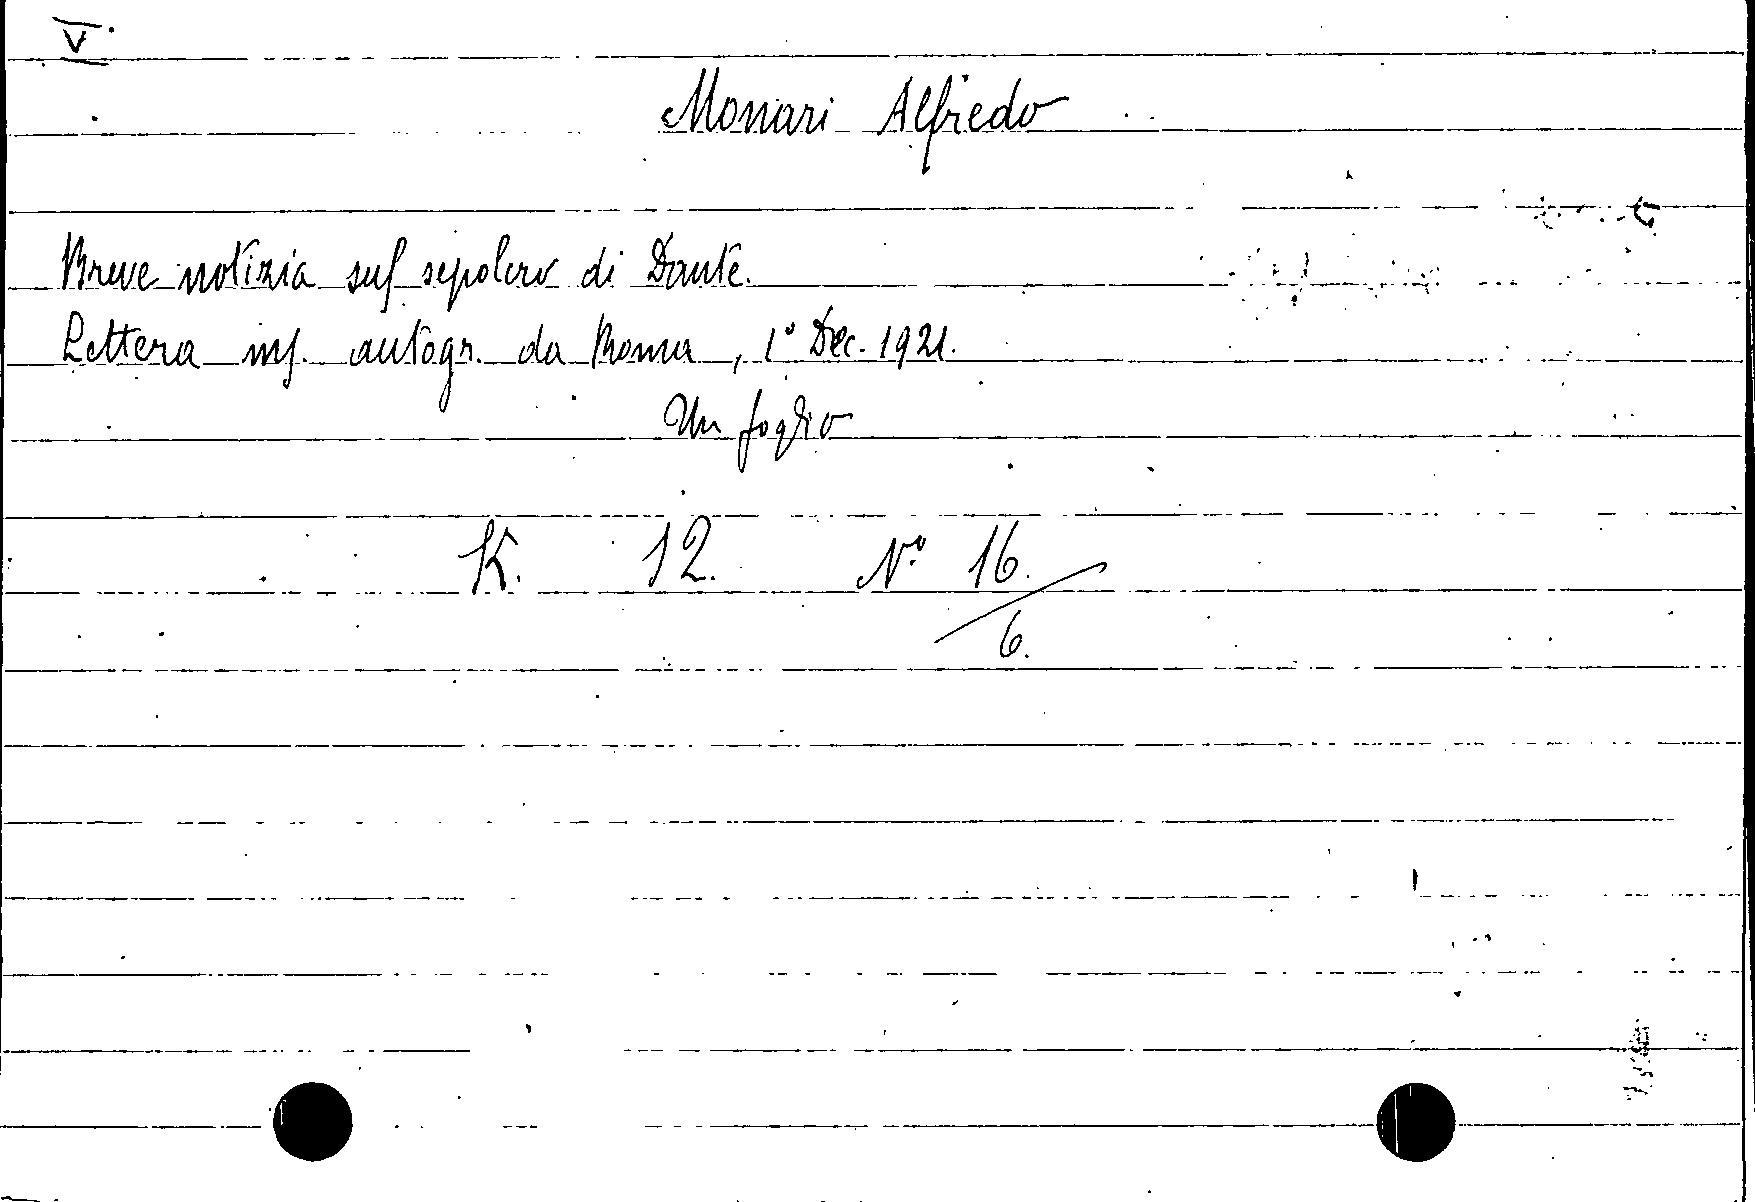 V.
Monari Alfredo
Breve notizia sul sepolcro di Dante.
Lettera ms. autogr. da Roma, 1° Dec. 1921.
Un foglio
K. 12. N° 16.
6.